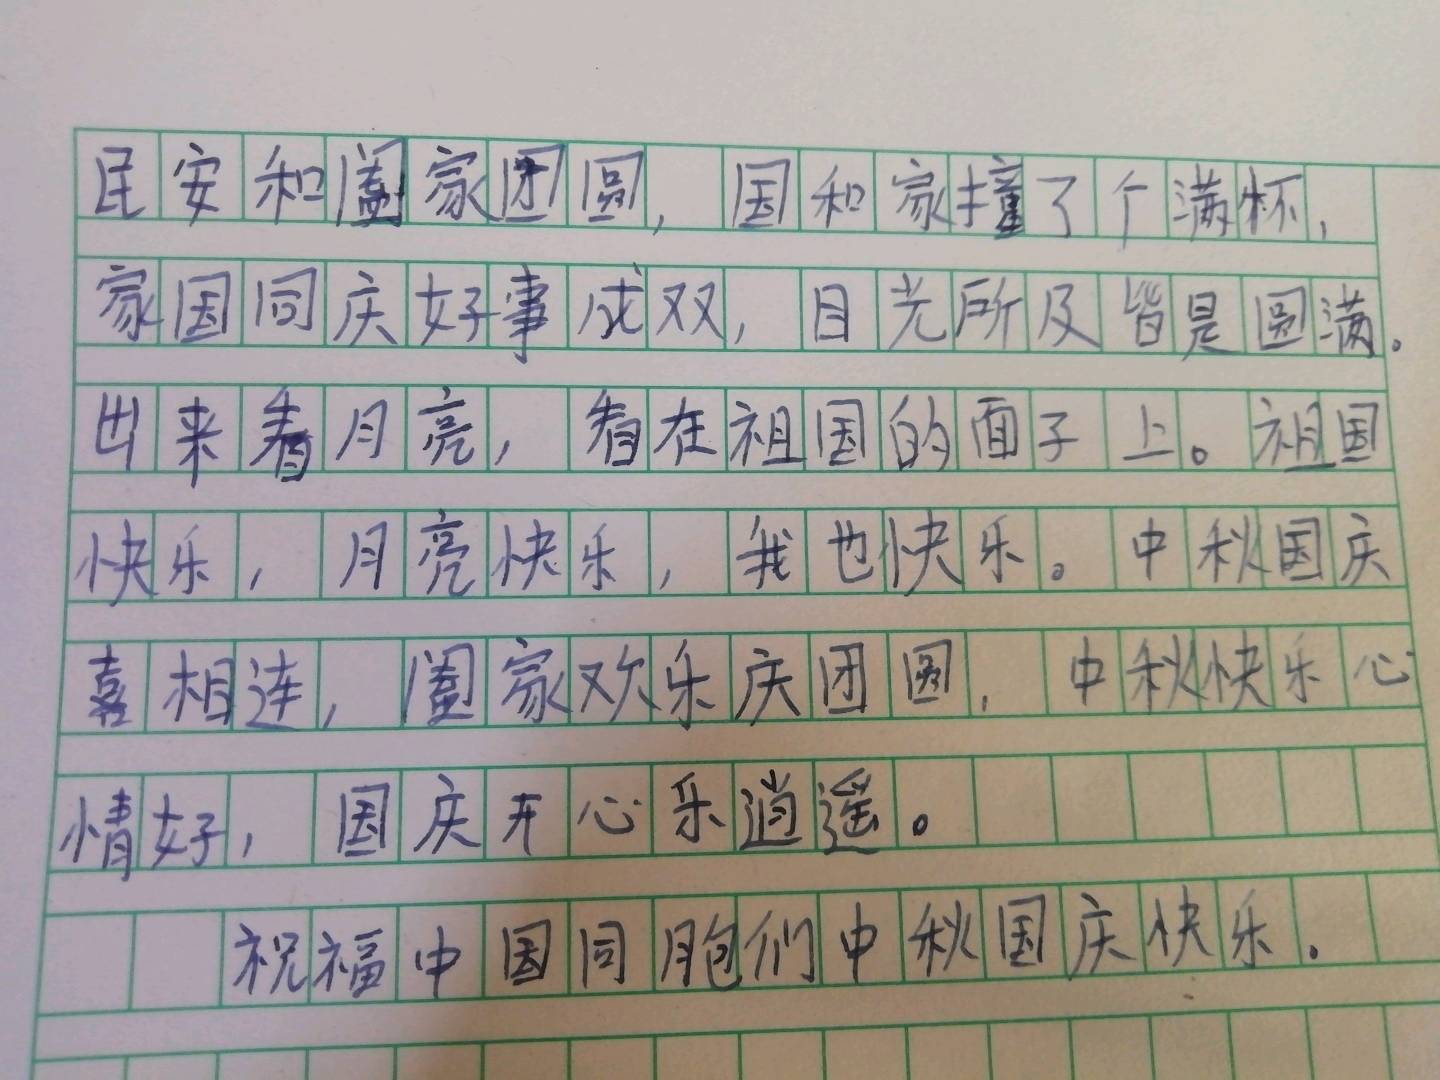 民安和阖家团圆，国和家撞了个满杯，
家国同庆好事成双，目光所及皆是圆满。
出来看月亮，看在祖国的面子上。祖国
快乐，月亮快乐，我也快乐。中秋国庆
喜相连，阖家欢乐庆团圆，中秋快乐心
情好，国庆开心乐逍遥。
祝福中国同胞们中秋国庆快乐.